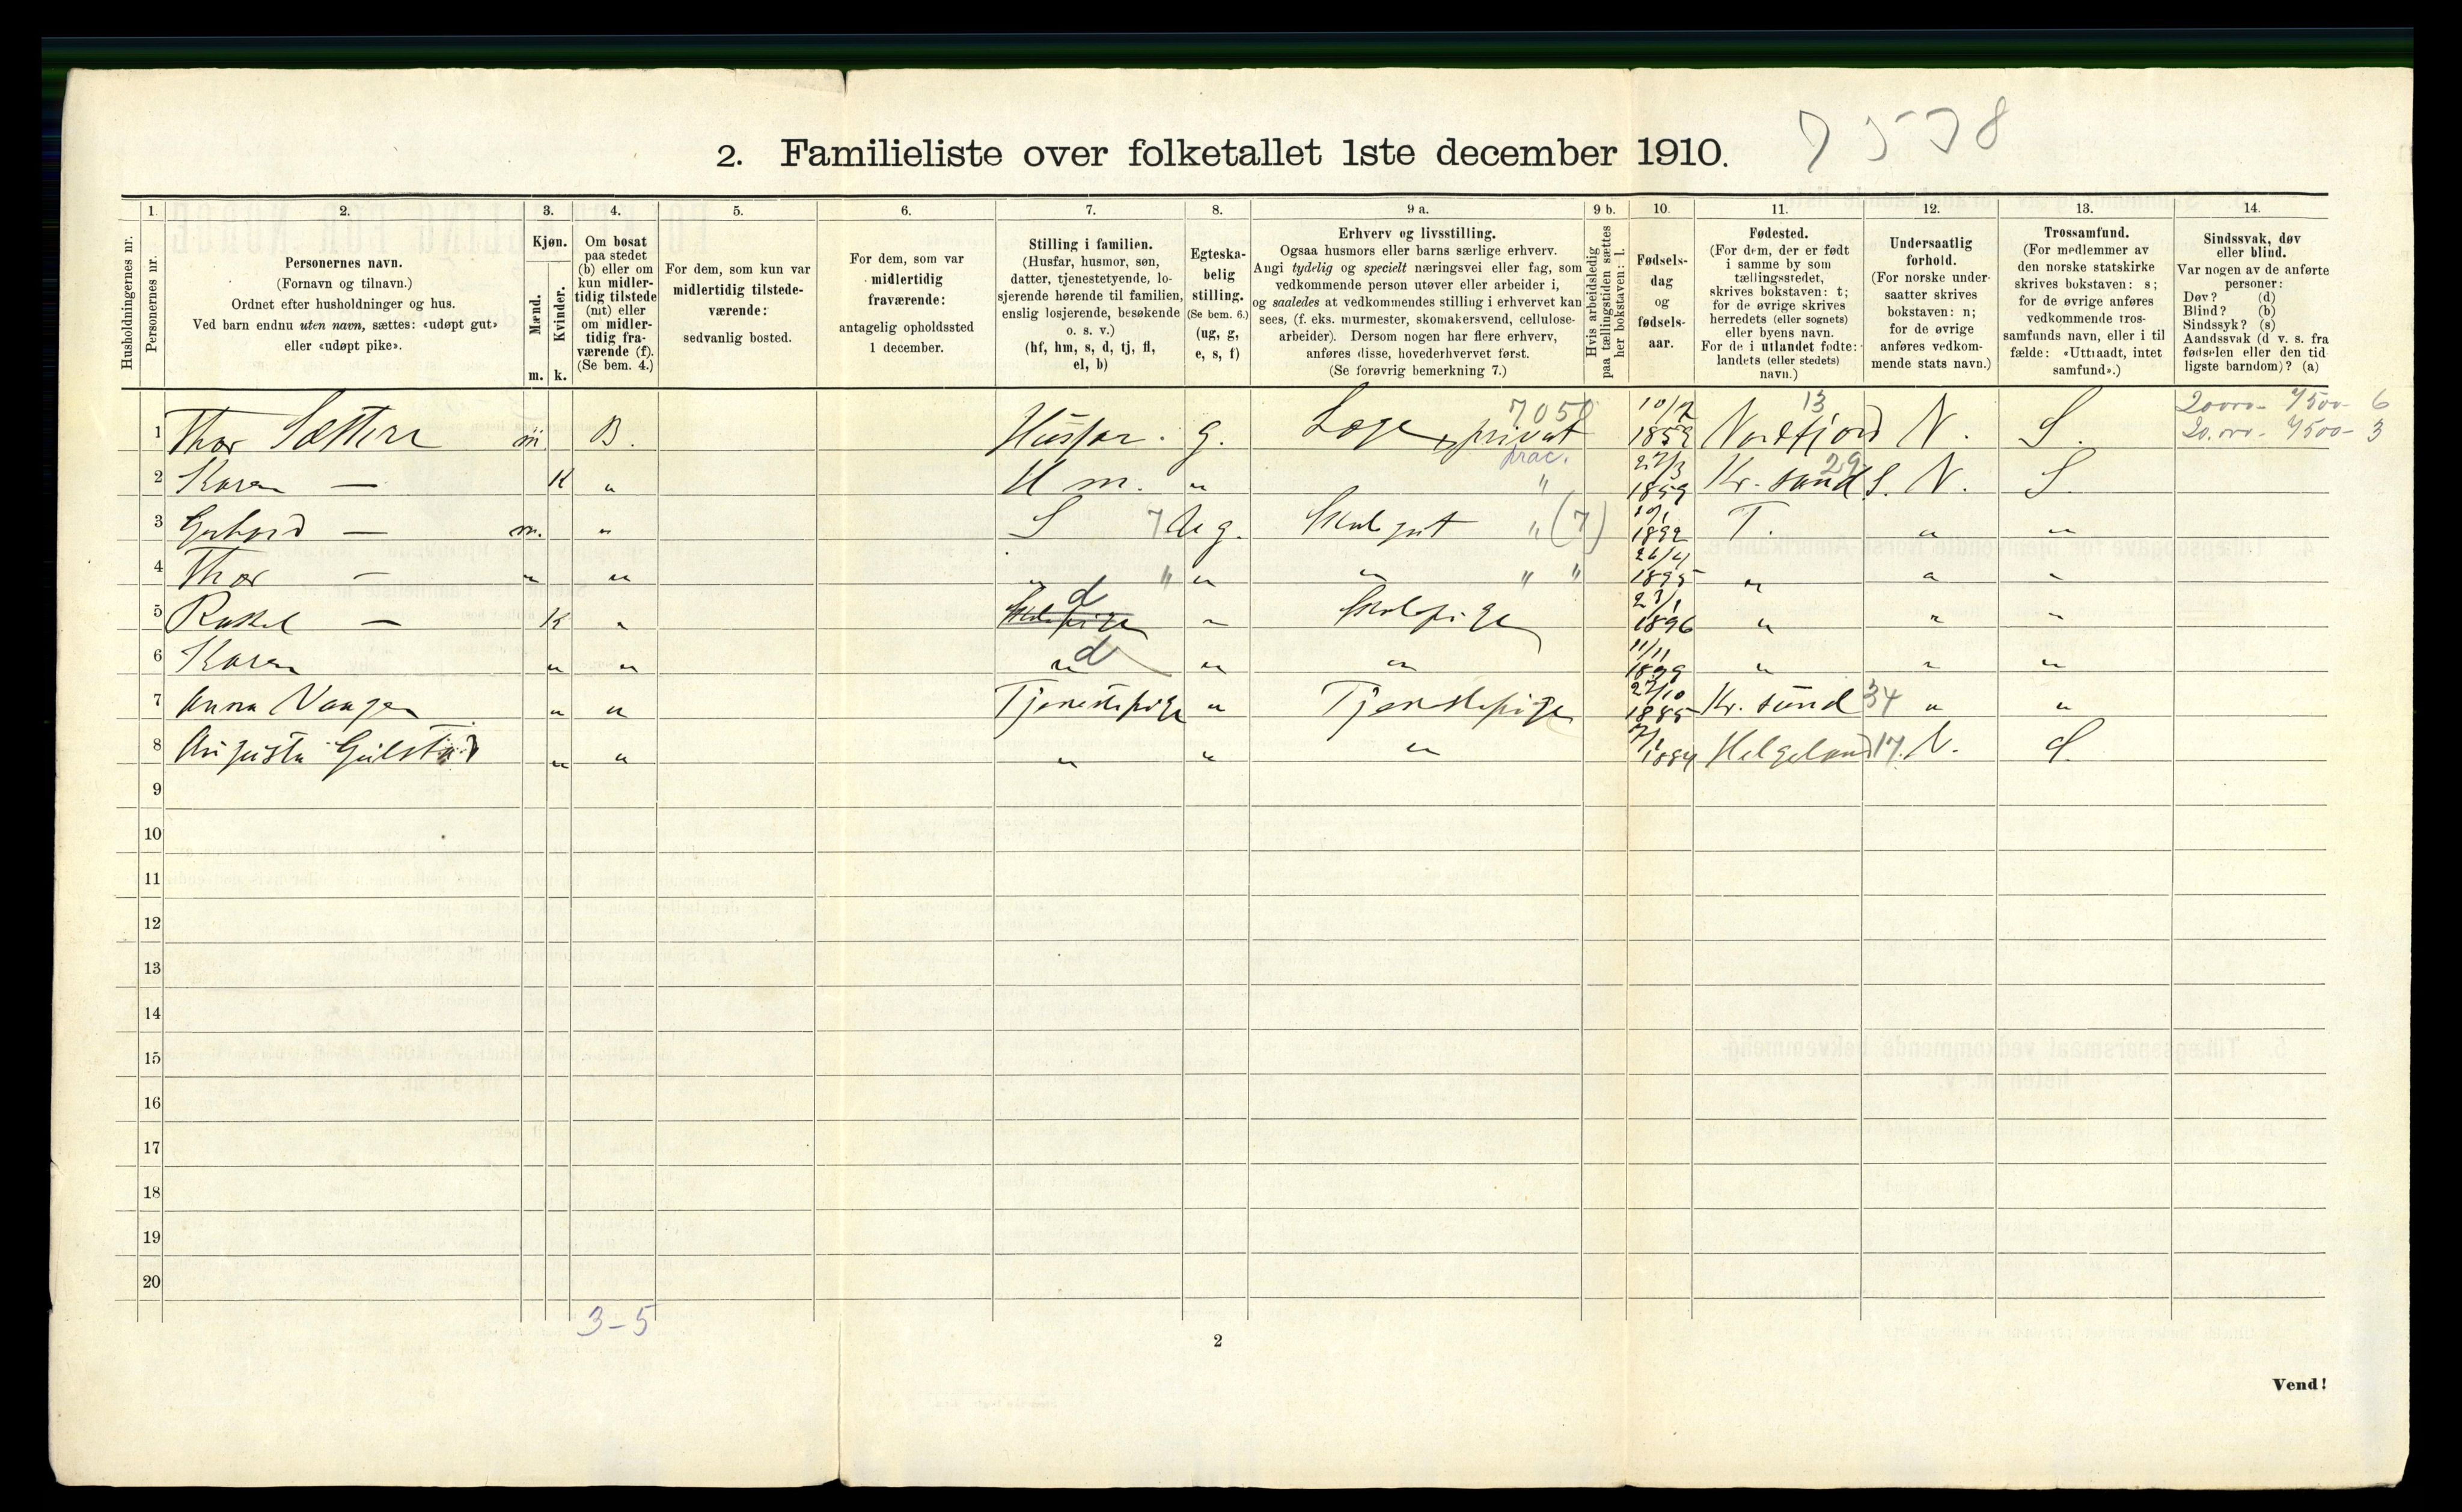 2. Familieliste over folketallet 1ste december 1910.
Husholdningernes nr.
1.
Personernes nr.
2.
Personernes navn.
(Fornavn og tilnavn.)
Ordnet efter husholdninger og hus.
Ved barn endnu uten navn, sættes: «udøpt gut»
eller «udøpt pike».
3.
Kjøn.
Mænd.
Kvinder.
m. k.
4.
Om bosat
paa stedet
(b) eller om
kun midler-
tidig tilstede
(mt) eller
om midler-
tidig fra-
værende (f).
(Se bem. 4.)
5.
For dem, som kun var
midlertidig tilstede-
værende:
sedvanlig bosted.
6.
For dem, som var
midlertidig
fraværende:
antagelig opholdssted
1 december.
7.
Stilling i familien.
(Husfar, husmor, søn,
datter, tjenestetyende, lo-
sjerende hørende til familien,
enslig losjerende, besøkende
o. s. v.)
(hf, hm, s, d, tj, fl,
el, b)
8.
Egteska-
belig
stilling.
(Se bem. 6.)
(ug, g,
e, s, f)
9 a.
Erhverv og livsstilling.
Ogsaa husmors eller barns særlige erhverv.
Angi tydelig og specielt næringsvei eller fag, som
vedkommende person utøver eller arbeider i,
og saaledes at vedkommendes stilling i erhvervet kan
sees, (f. eks. murmester, skomakersvend, cellulose-
arbeider). Dersom nogen har flere erhverv,
anføres disse, hovederhvervet først.
(Se forøvrig bemerkning 7.)
9 b.
Hvis arbeidsledig
paa tællingstiden sættes
her bokstaven: l.
10.
Fødsels-
dag
og
fødsels-
aar.
11.
Fødested.
(For dem, der er født
i samme by som
tællingsstedet,
skrives bokstaven: t;
for de øvrige skrives
herredets (eller sognets)
eller byens navn.
For de i utlandet fødte:
landets (eller stedets)
navn.)
12.
Undersaatlig
forhold.
(For norske under-
saatter skrives
bokstaven: n;
for de øvrige
anføres vedkom-
mende stats navn.)
13.
Trossamfund.
(For medlemmer av
den norske statskirke
skrives bokstaven: s;
for de øvrige anføres
vedkommende tros-
samfunds navn, eller i til
fælde: «Uttraadt, intet
samfund».)
14.
Sindssvak, døv
eller blind.
Var nogen av de anførte
personer:
Døv? (d)
Blind? (b)
Sindssyk? (s)
Aandssvak (d v. s. fra
fødselen eller den tid
ligste barndom)? (a)
1 Thor Sættere m. B. Husfar. g. Læge, privat 1859 Nordfjord 13 N. S.
prac.
2 Karen — K " Hm. " " 27/3 1859 Kr. sund S. 29 N. S.
3 — m. " S 7 Ug. Skolegut " (7) 1892 T. " "
4 Thor — " " " " " " " " 26/4 1895 " " "
5 Rakel — K " d " Skolepige 23/1 1896 " " "
6 Karen " " " d " " 11/11 1899 " " "
7 Anna Vaagen " " Tjenestepige " Tjenestepige 27/10 1885 Kr. sund 34 " "
8 Augusta Gulstad " " " " " 1884 Helgeland 17. N. S.
9
10
11
12
13
14
15
16
17
18
19
20
3-5
2
Vend!